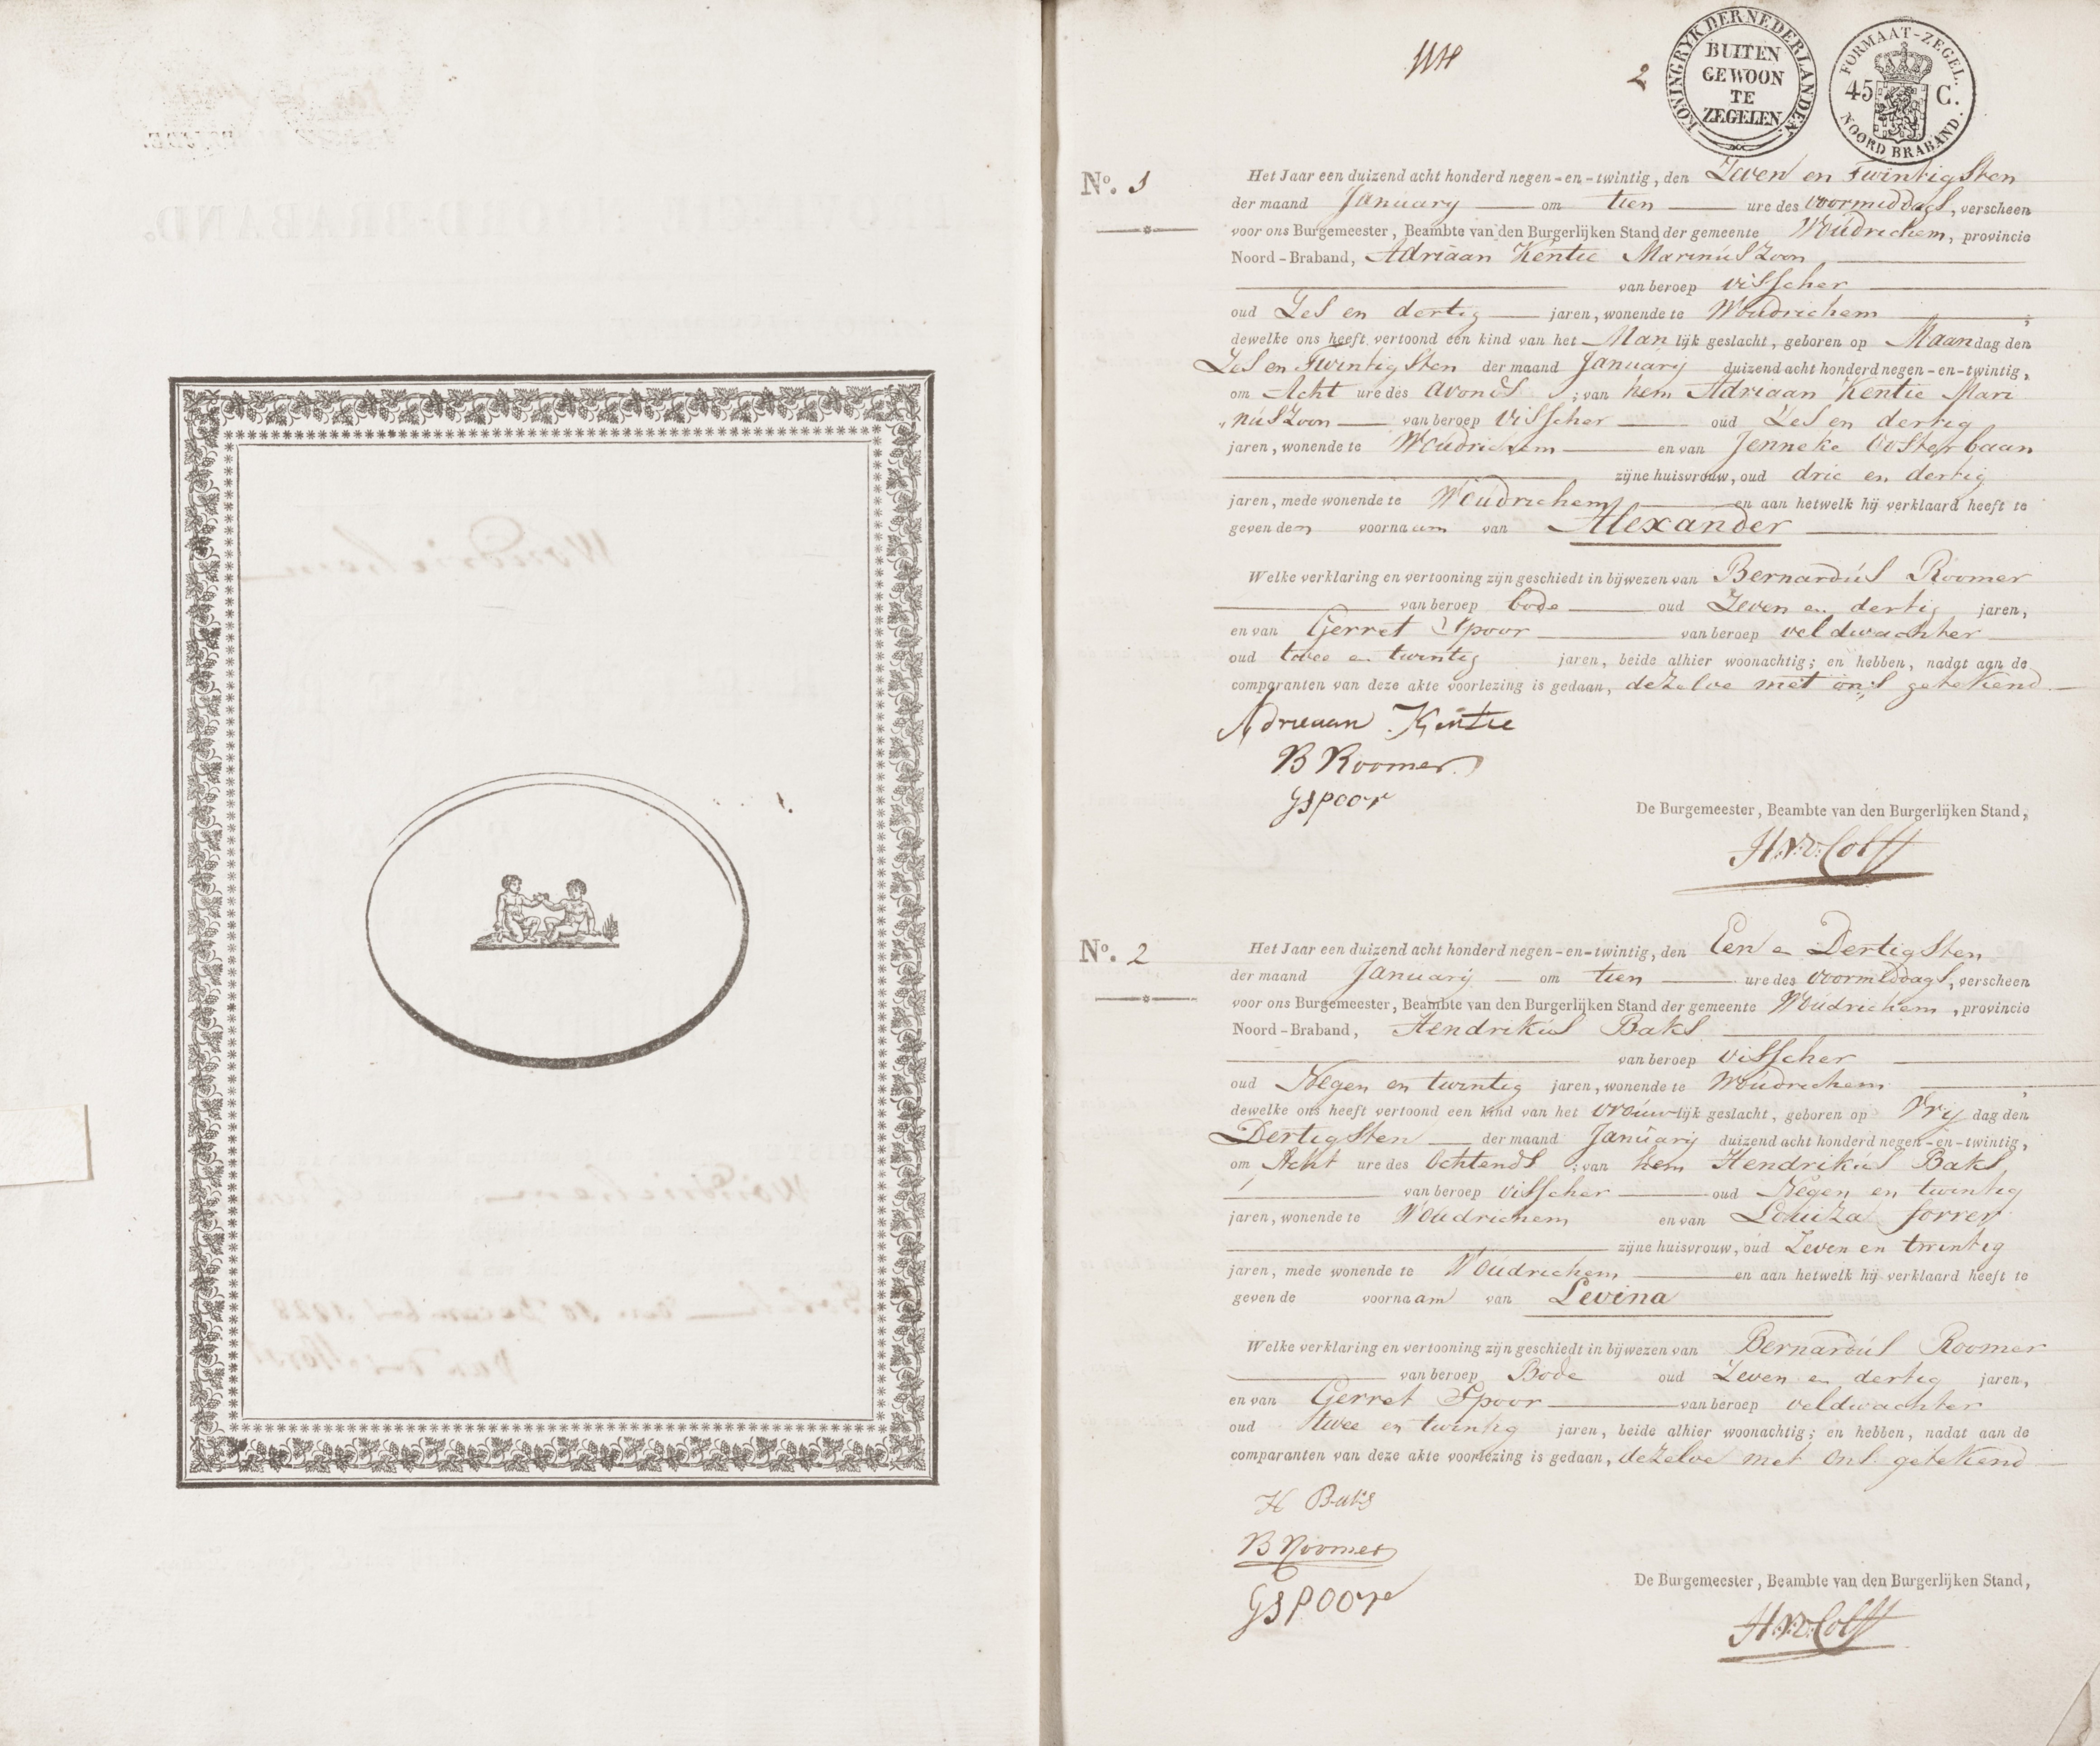 2
KONINGRYK DER NEDERLANDEN
BUITEN
GEWOON
TE
ZEGELEN
FORMAAT-ZEGEL.
45 C.
NOORD BRABAND.
No. 1
Het Jaar een duizend acht honderd negen-en-twintig, den Zeven en Twintigsten
der maand January om tien ure des voormiddags, verscheen
voor ons Burgemeester, Beambte van den Burgerlijken Stand der gemeente Woudrichem, provincie
Noord-Braband, Adriaan Kentie Marinus Zoon
van beroep visscher
oud Zes en dertig jaren, wonende te Woudrichem ;
dewelke ons heeft vertoond een kind van het Man lijk geslacht, geboren op Maandag den
Zes en Twintigsten der maand January duizend acht honderd negen-en-twintig,
om Acht ure des Avonds ; van hem Adriaan Kentie Mari
„nus Zoon van beroep Visscher oud Zes en dertig
jaren, wonende te Woudrichem en van Jenneke Oosterbaan
zijne huisvrouw, oud drie en dertig
jaren, mede wonende te Woudrichem en aan hetwelk hij verklaard heeft te
geven den voornaam van Alexander
Welke verklaring en vertooning zijn geschiedt in bijwezen van Bernardus Roomer
van beroep bode oud Zeven en dertig jaren,
en van Gerret Spoor van beroep veldwachter
oud twee en twintig jaren, beide alhier woonachtig; en hebben, nadat aan de
comparanten van deze akte voorlezing is gedaan, dezelve met ons getekend
Adriaan Kentie
B Roomer
G Spoor
De Burgemeester, Beambte van den Burgerlijken Stand,
No. 2
Het Jaar een duizend acht honderd negen-en-twintig, den Een en Dertigsten
der maand January om tien ure des voormiddags, verscheen
voor ons Burgemeester, Beambte van den Burgerlijken Stand der gemeente Woudrichem, provincie
Noord-Braband, Hendrikus Baks
van beroep visscher
oud Negen en twintig jaren, wonende te Woudrichem ;
dewelke ons heeft vertoond een kind van het vrouw lijk geslacht, geboren op Vrij dag den
Dertigsten der maand January duizend acht honderd negen-en-twintig,
om Acht ure des Ochtends ; van hem Hendrikus Baks,
van beroep visscher oud Negen en twintig
jaren, wonende te Woudrichem en van Louiza Forrer
zijne huisvrouw, oud Zeven en twintig
jaren, mede wonende te Woudrichem en aan hetwelk hij verklaard heeft te
geven de voornaam van Levina
Welke verklaring en vertooning zijn geschiedt in bijwezen van Bernardus Roomer
van beroep Bode oud Zeven en dertig jaren,
en van Gerret Spoor van beroep veldwachter
oud twee en twintig jaren, beide alhier woonachtig; en hebben, nadat aan de
comparanten van deze akte voorlezing is gedaan, dezelve met ons getekend
H Baks
B Roomer
G Spoor
De Burgemeester, Beambte van den Burgerlijken Stand,